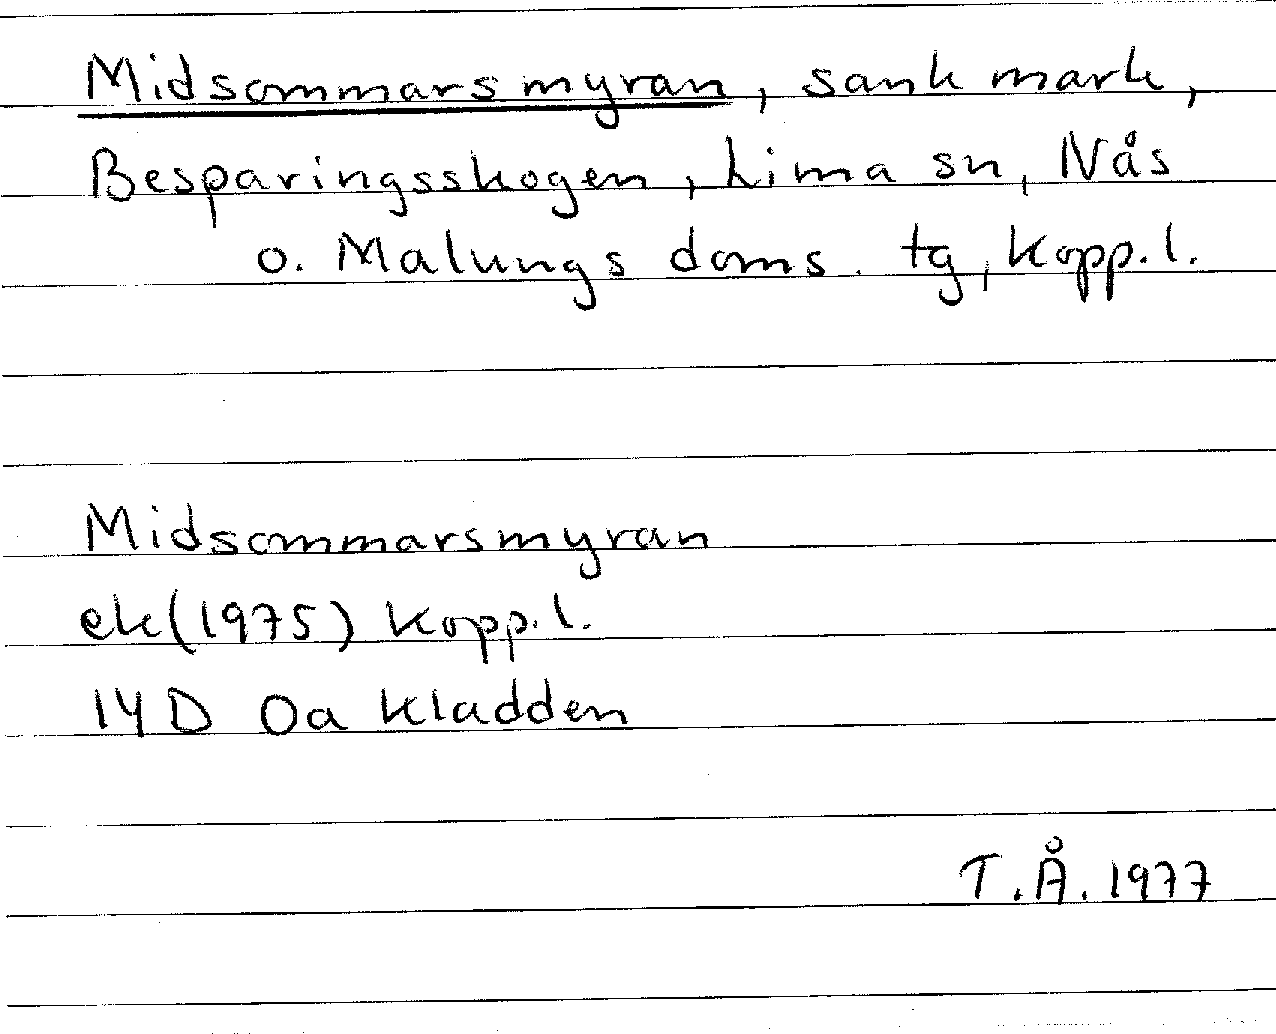 Midsommarsmyran, sank mark,
Besparingsskogen, Lima sn, Nås
o. Malungs doms. tg, Kopp.l.
Midsommarsmyran
ek(1975) Kopp.l.
14D 0a Kladden
T.Å. 1977